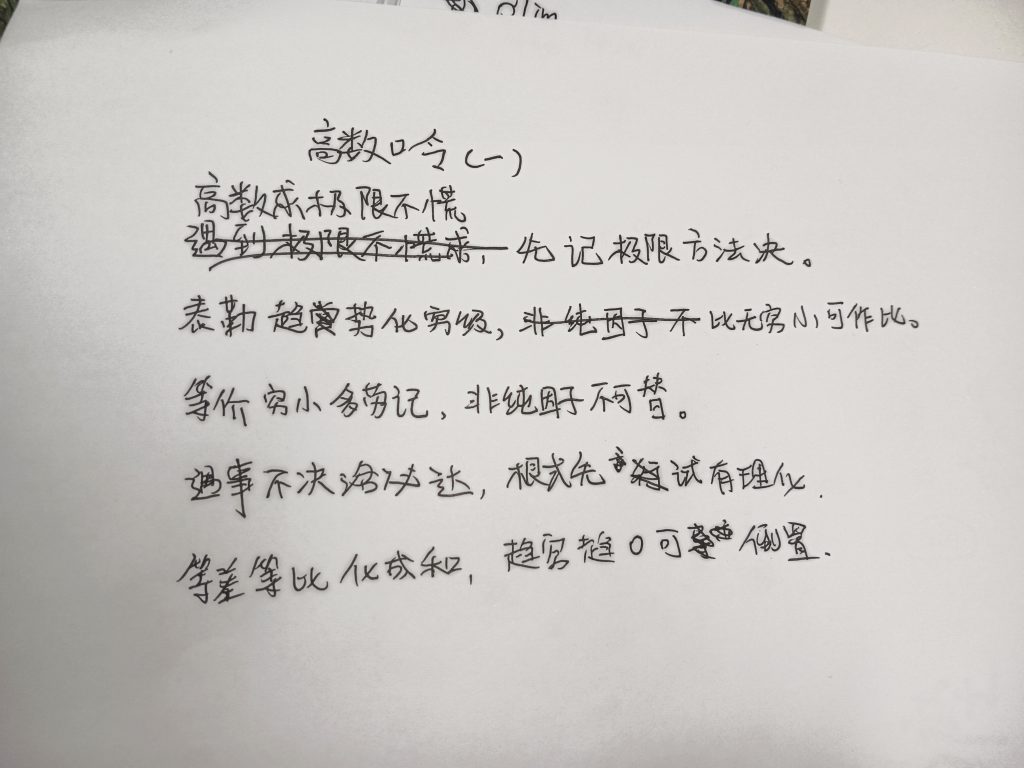 高数口令(一)
高数求极限不慌
遇到极限不慌求,先记极限方法决。
泰勒趋势化穷级,非纯因子不比无穷小可作比。
等价穷小多劳记,非纯因子不可替。
遇事不决洛必达,根式先试有理化.
等差等比化成和,趋穷趋0可倒置.